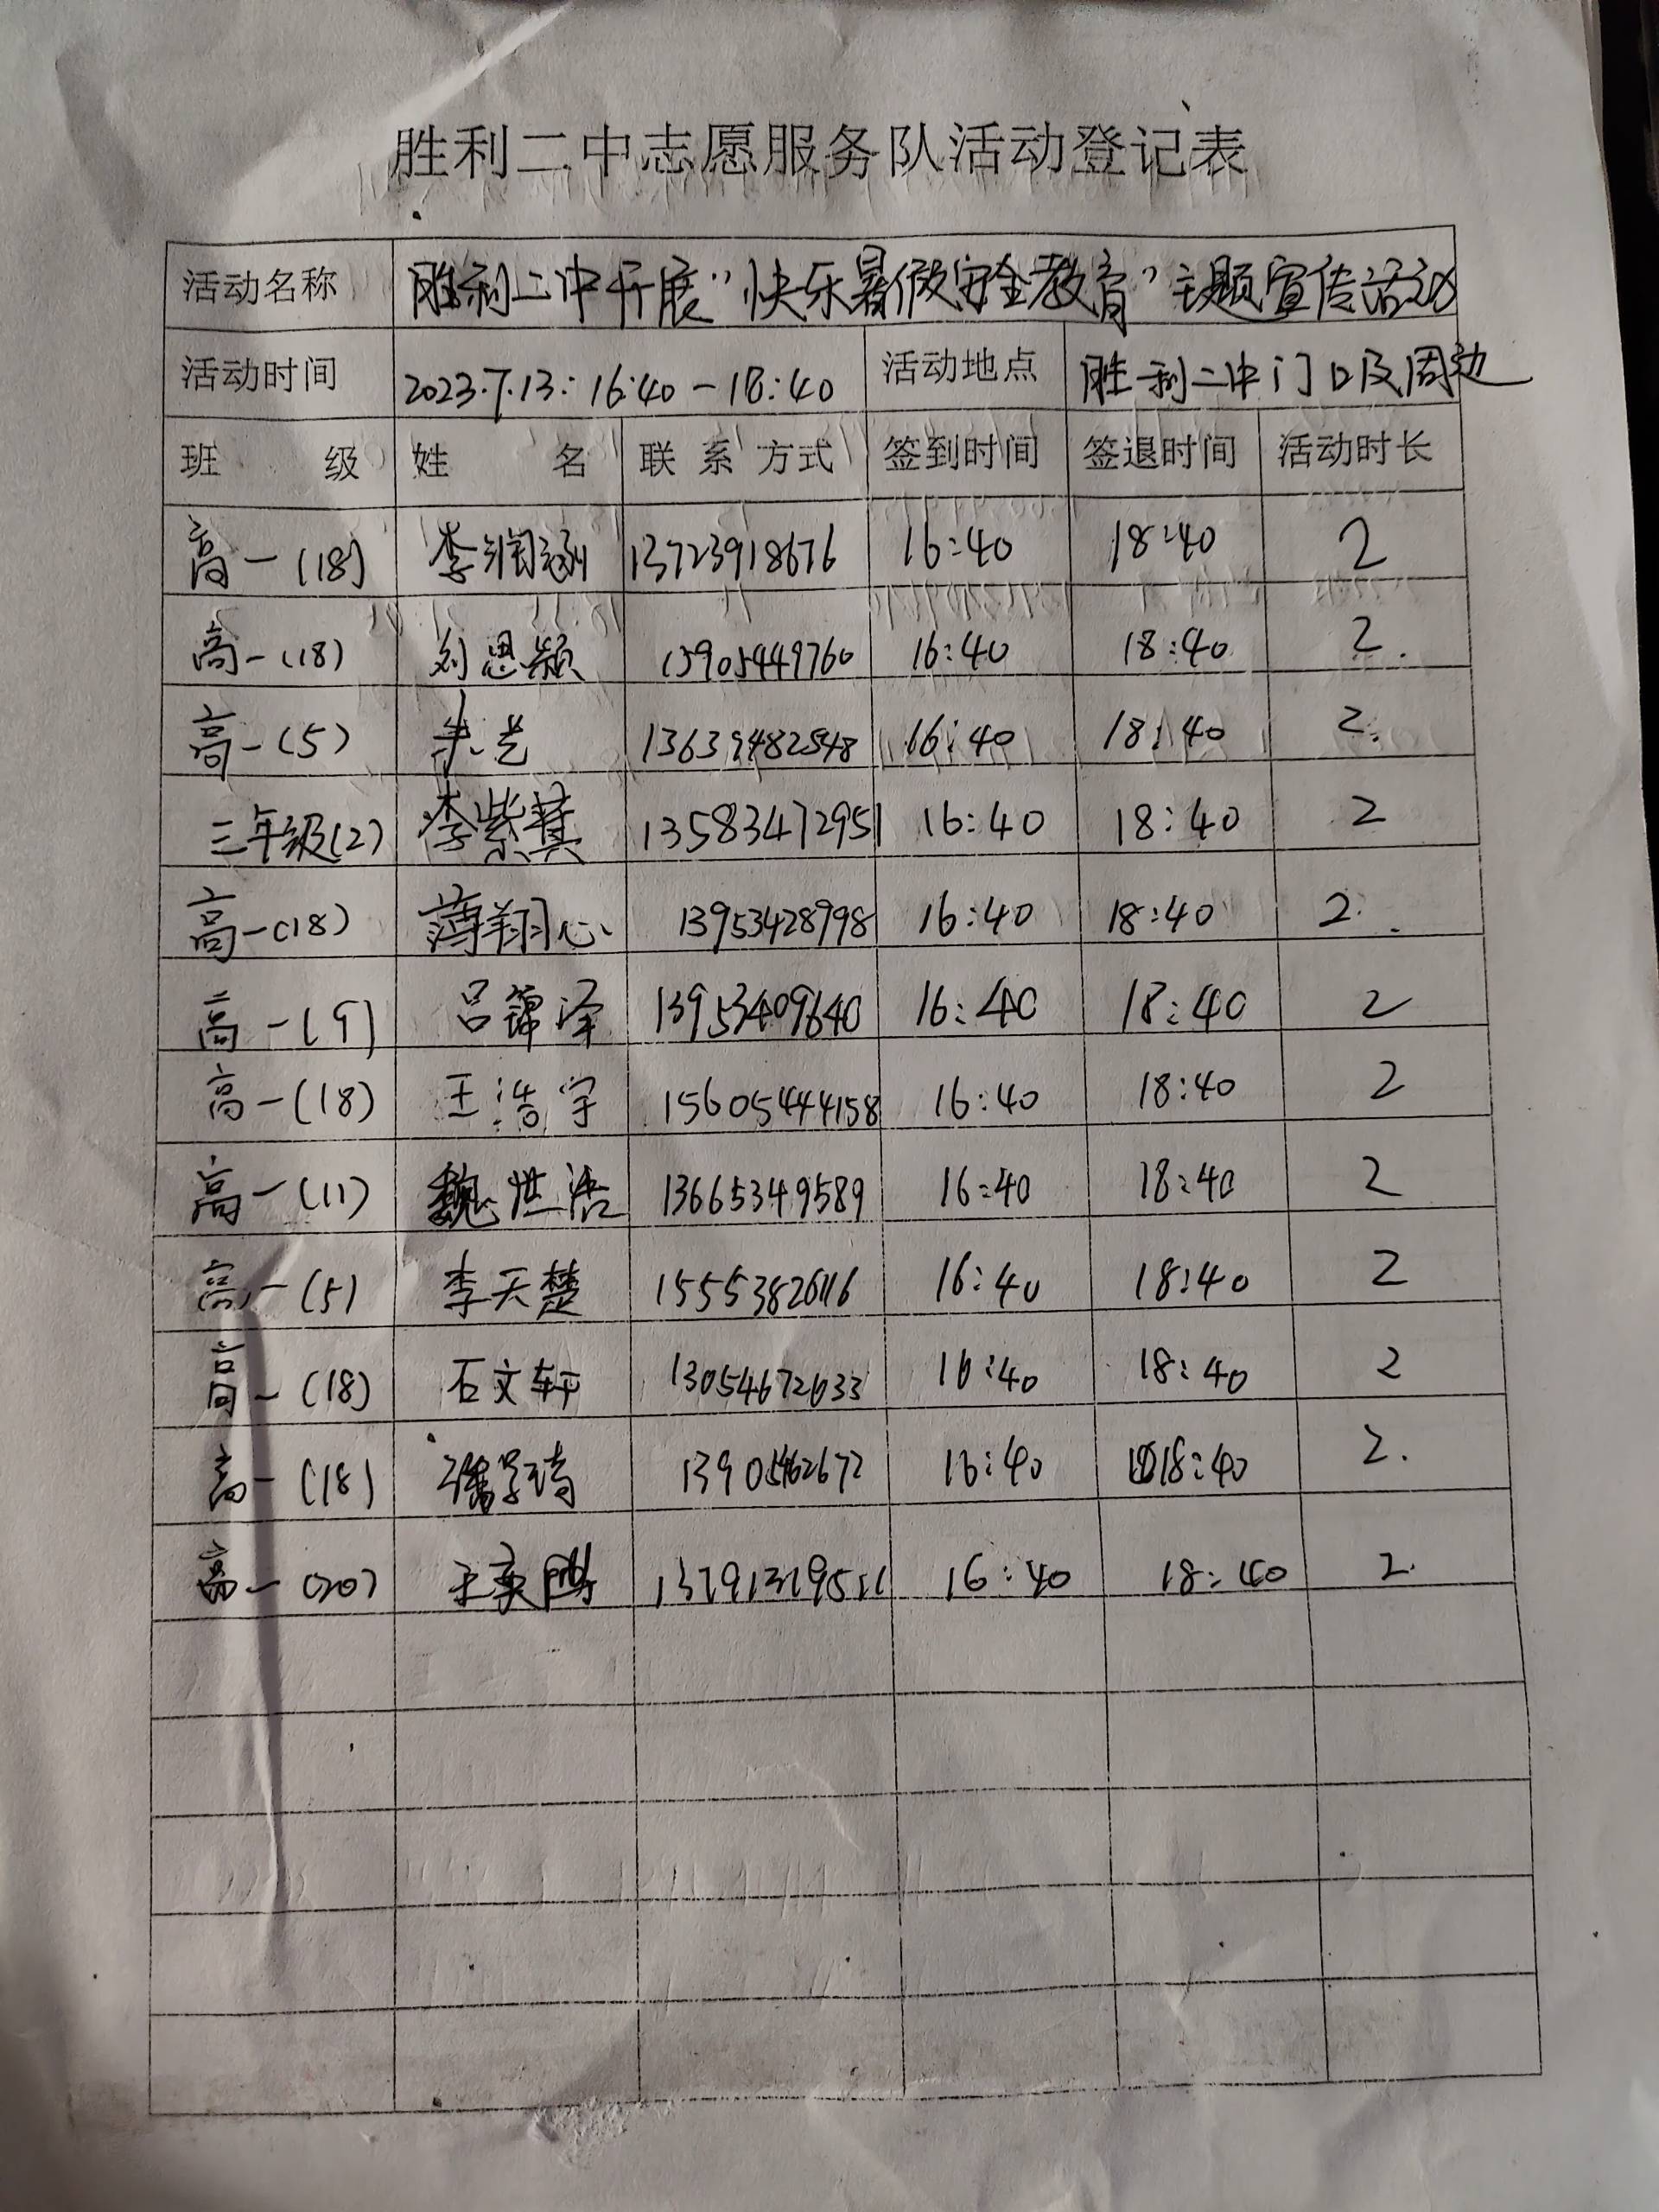 胜利二中志愿服务队活动登记表
活动名称 胜利二中开展“快乐暑假安全教育”主题宣传活动
活动时间 2023.7.13: 16:40-18:40 活动地点 胜利二中门口及周边
班 级 姓 名 联系方式 签到时间 签退时间 活动时长
高一(18) 李润涵 13723918676 16:40 18:40 2
高一(18) 刘思颖 15905449760 16:40 18:40 2.
高一(5) 朱艺 13639482548 16:40 18:40 2.
三年级(2) 李紫萁 13583472951 16:40 18:40 2
高一(18) 薄翔心 13953428998 16:40 18:40 2.
高一(9) 吕锦泽 13953409640 16:40 18:40 2
高一(18) 王浩宇 15605444158 16:40 18:40 2
高一(11) 魏世浩 13665349589 16:40 18:40 2
高一(5) 李天楚 15553826116 16:40 18:40 2
高一(18) 石文轩 13054672633 16:40 18:40 2
高一(18) 16:40 18:40 2.
高一(20) 16:40 18:40 2.